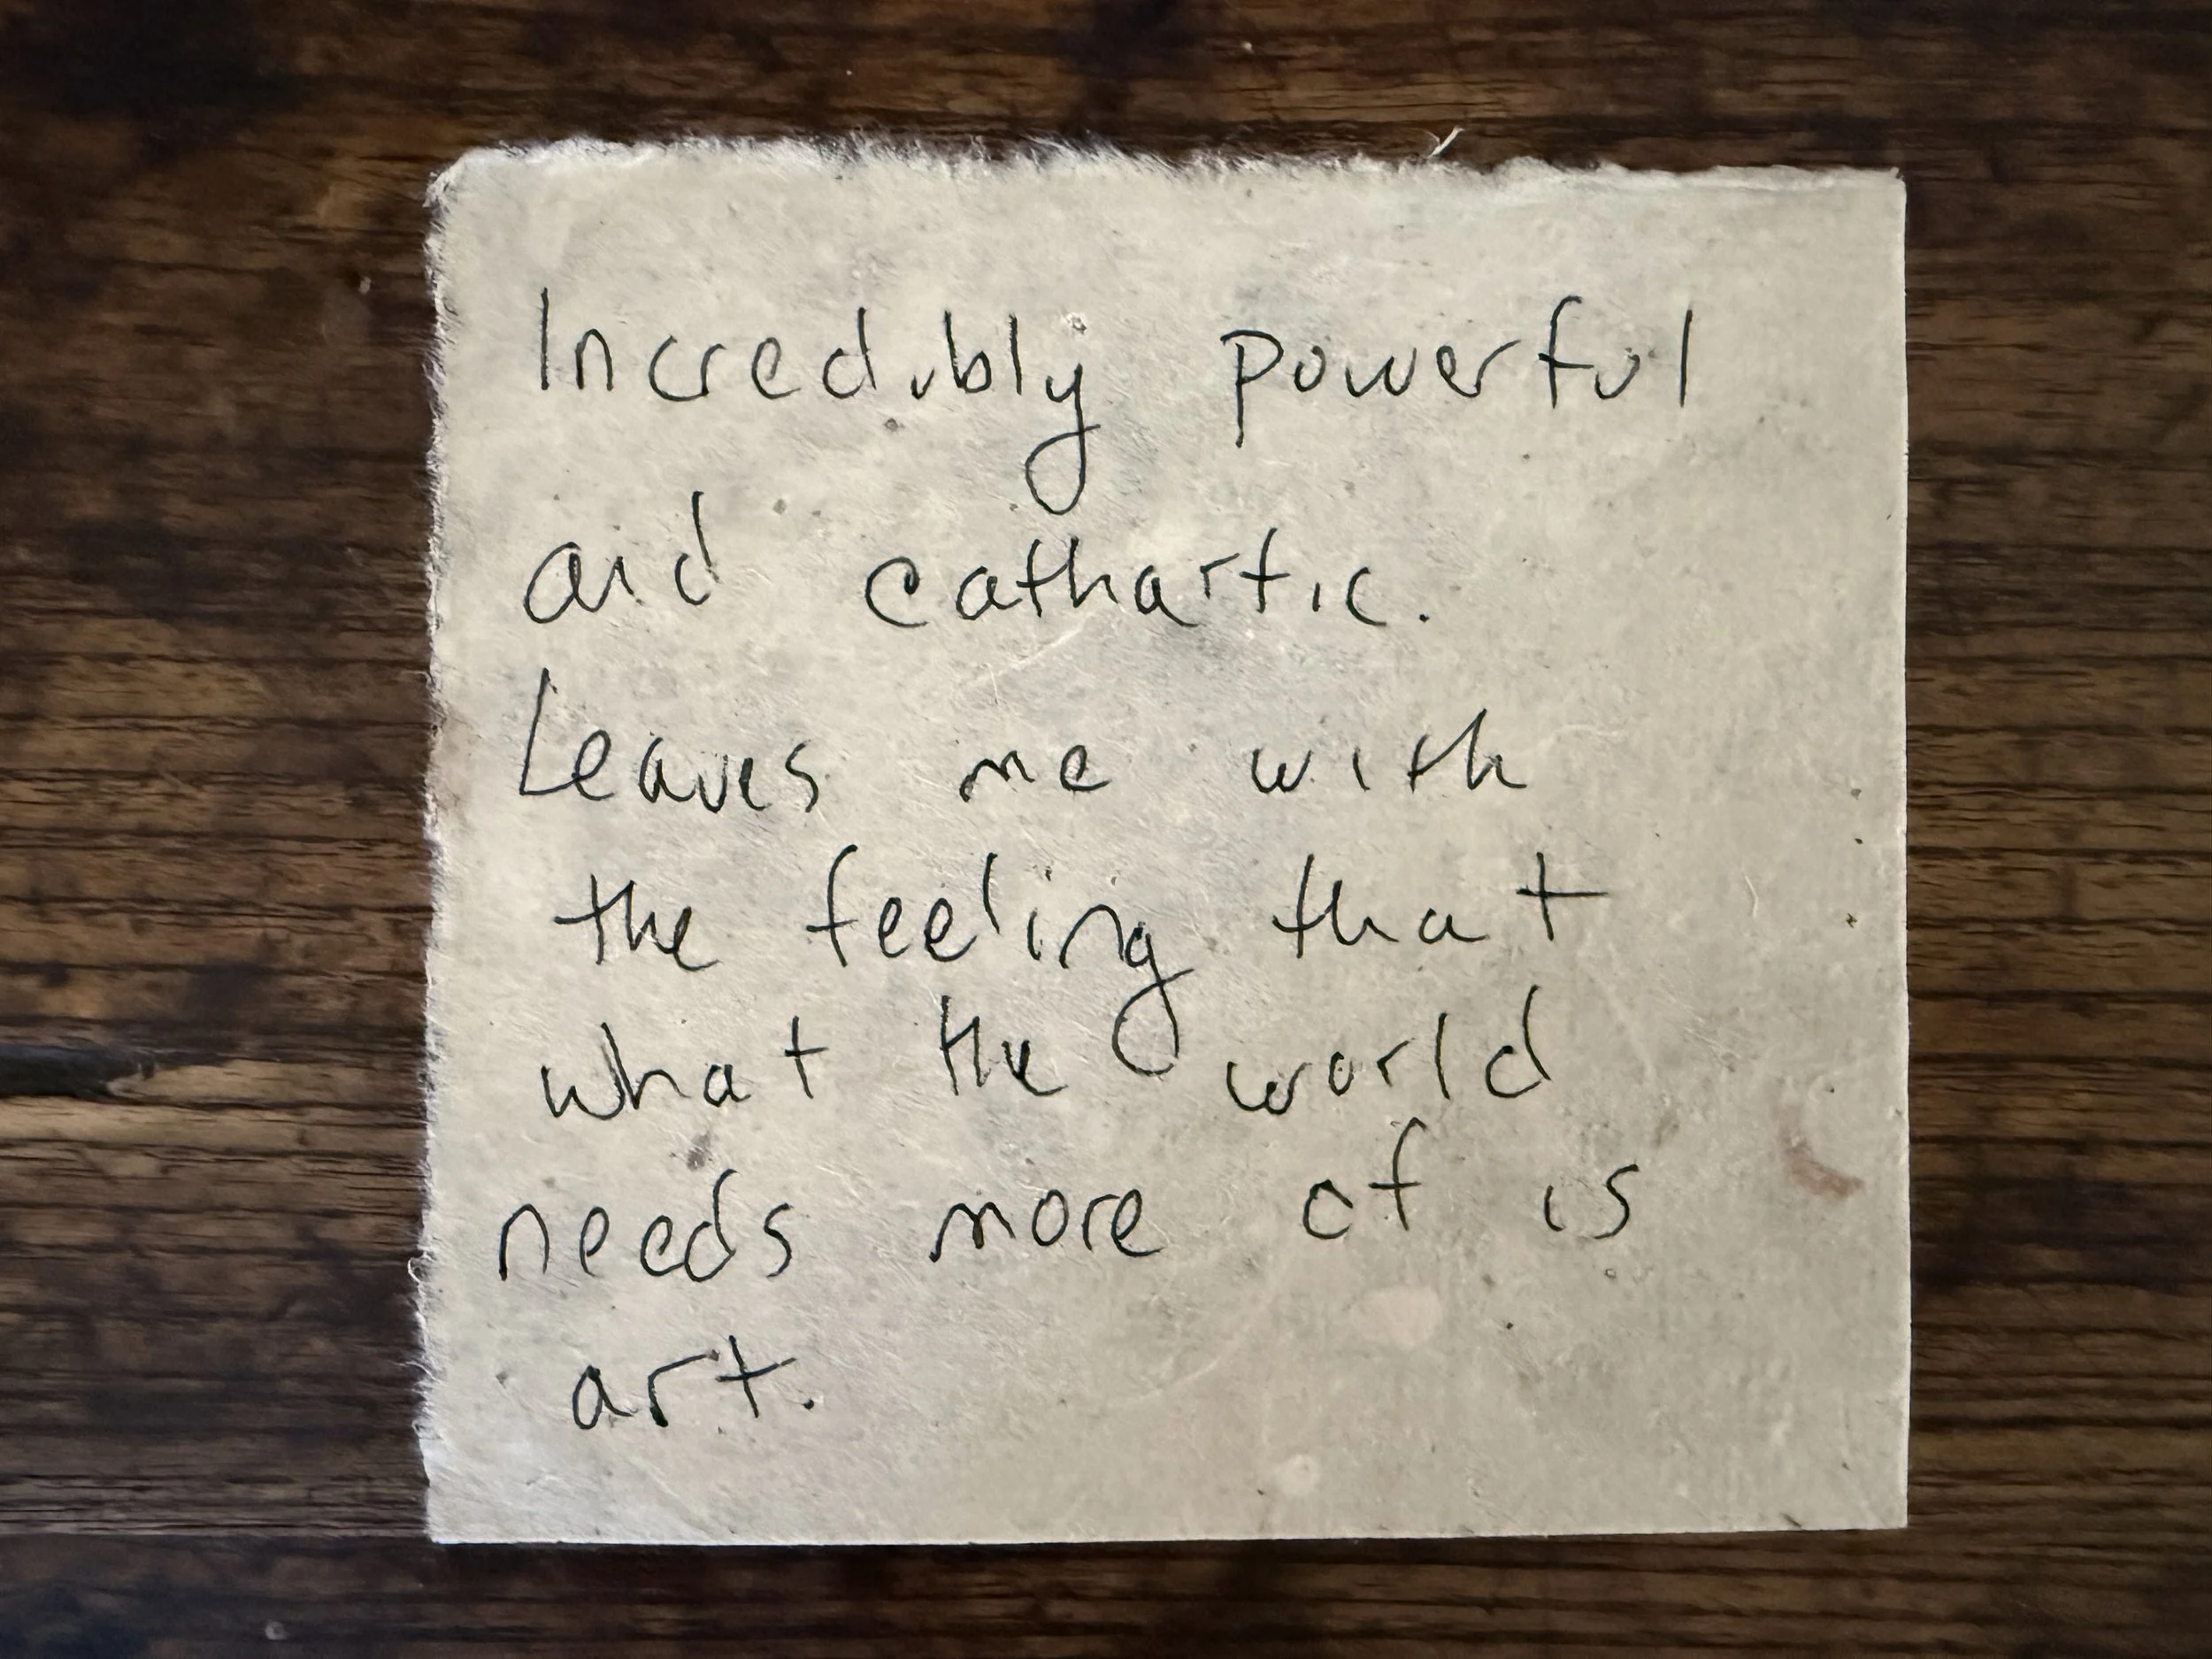 Incredibly powerful
and cathartic.
Leaves me with
the feeling that
what the world
needs more of is
art.